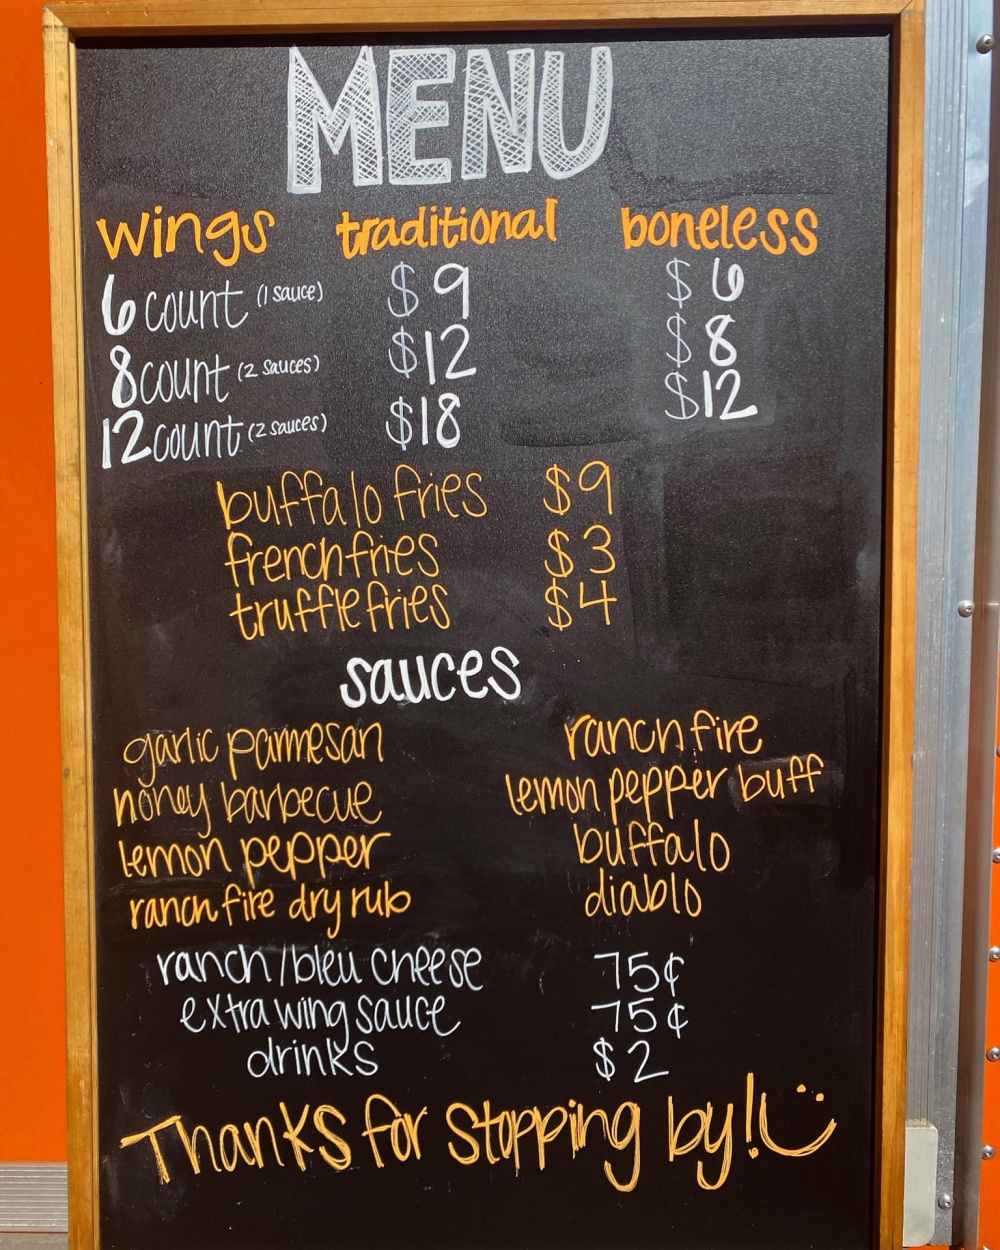 MENU
wings traditional boneless
6 count (1 sauce) $9 $6
8 count (2 sauces) $12 $8
12 count (2 sauces) $18 $12
buffalo fries $9
french fries $3
truffle fries $4
sauces
garlic parmesan ranch fire
honey barbecue lemon pepper buff
lemon pepper buffalo
ranch fire dry rub diablo
ranch/bleu cheese 75¢
extra wing sauce 75¢
drinks $2
Thanks for stopping by!